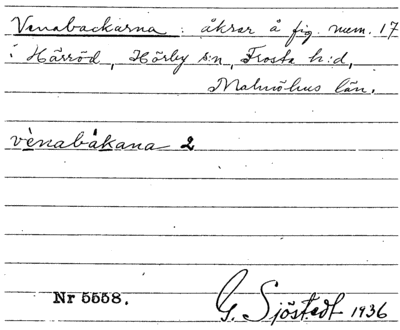 Venabackarna : åkrar å fig. num. 17
i Härröd, Hörby s:n, Frosta h:d,
Malmöhus län.
vènabákana 2
Nr 5558.
G. Sjöstedt 1936